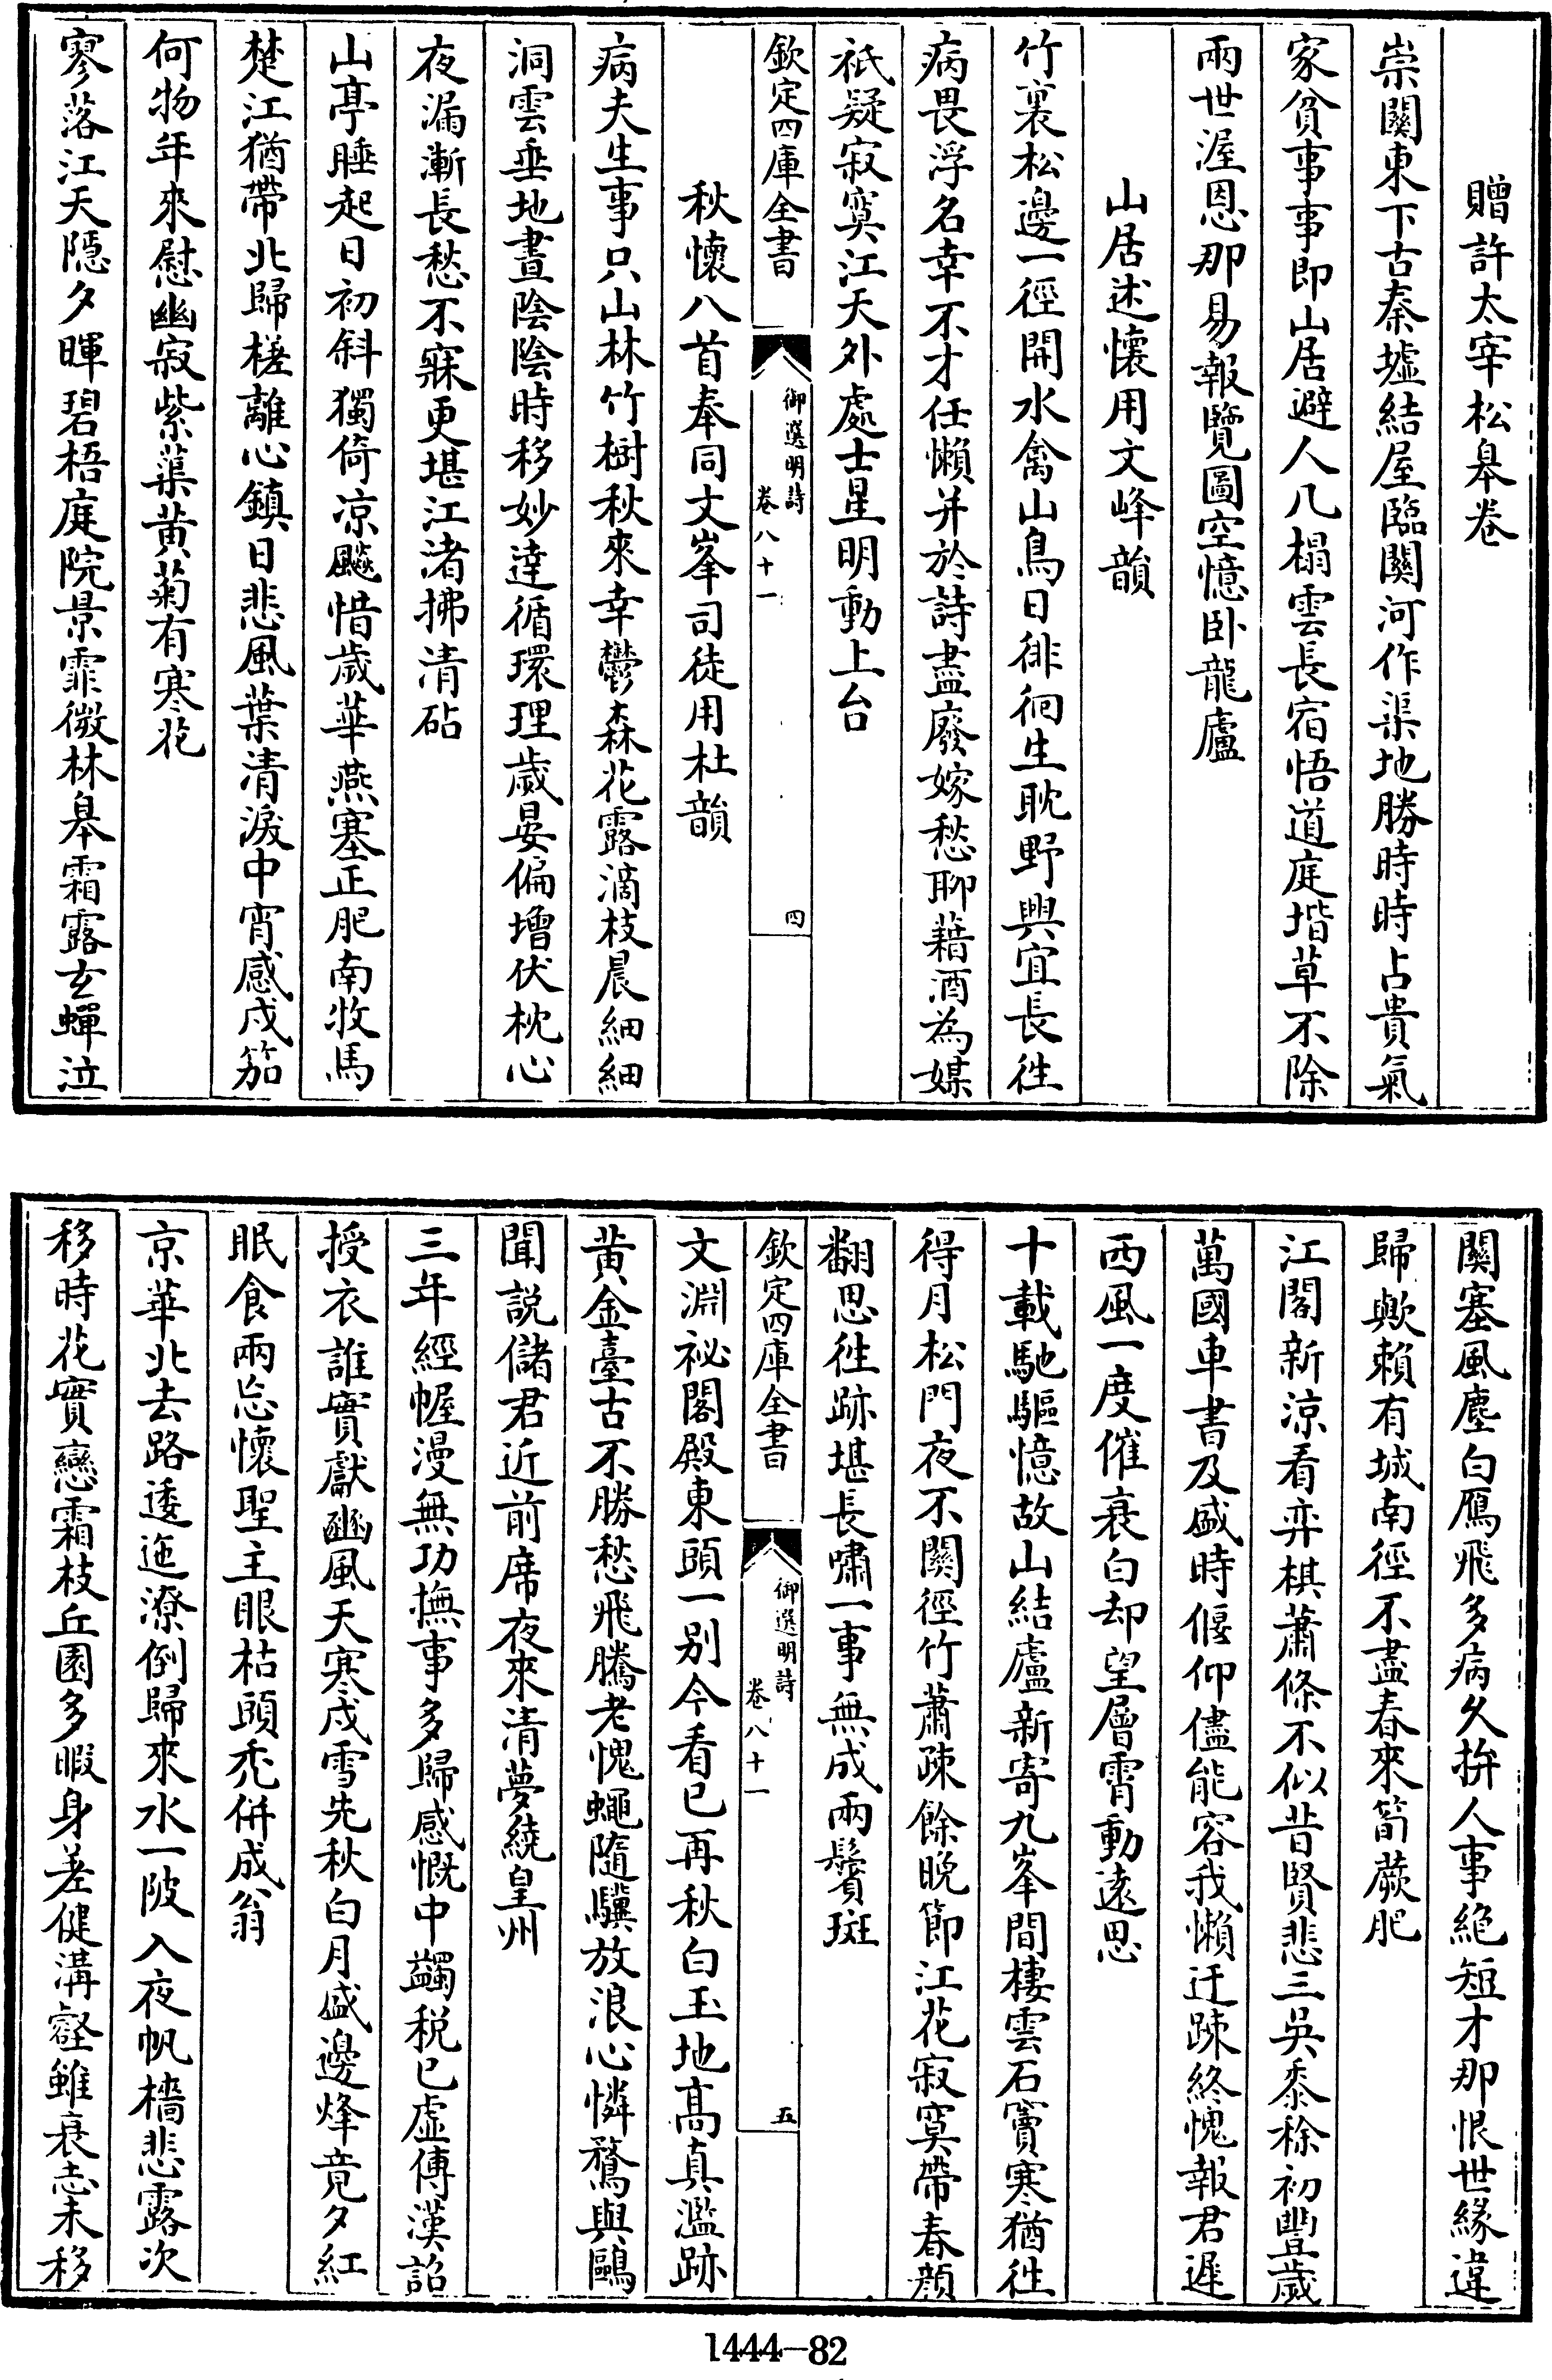 贈許太宰松皋卷
崇關東下古秦墟結屋臨關河作渠地勝時時占貴氣
家貧事事即山居避人几榻雲長宿悟道庭堦草不除
兩世渥恩那易報覽圖空憶卧龍廬
山居述懷用文峰韻
竹裏松邊一徑開水禽山鳥日徘徊生耽野興宜長徃
病畏浮名幸不才任懶并於詩盡廢嫁愁聊藉酒為媒
祇疑寂寞江天外處士星明動上台
欽定四庫全書
御選明詩
卷八十一
四
秋懷八首奉同文峯司徒用杜韻
病夫生事只山林竹樹秋來幸鬱森花露滴枝晨細細
洞雲垂地晝陰陰時移妙達循環理歲晏偏增伏枕心
夜漏漸長愁不寐更堪江渚拂清砧
山亭睡起日初斜獨倚凉颸惜歲華燕塞正肥南牧馬
楚江猶帶北歸槎離心鎮日悲風葉清淚中宵感戍笳
何物年來慰幽寂紫萸黄菊有寒花
寥落江天隱夕暉碧梧庭院景霏微林皋霜露玄蟬泣
關塞風塵白鴈飛多病久拚人事絶短才那恨世緣違
歸歟賴有城南徑不盡春來筍蕨肥
江閣新涼看弈棋蕭條不似昔賢悲三吳黍稌初豐歲
萬國車書及盛時偃仰儘能容我懶迂踈終愧報君遲
西風一度催衰白却望層霄動遠思
十載馳驅憶故山結廬新寄九峯間棲雲石竇寒猶徃
得月松門夜不關徑竹蕭疎餘晚節江花寂寞帶春顔
翻思徃跡堪長嘯一事無成兩鬢斑
欽定四庫全書
御選明詩
卷八十一
五
文淵祕閣殿東頭一别今看已再秋白玉地髙真濫跡
黄金臺古不勝愁飛騰老愧蠅隨驥放浪心憐鶩與鷗
聞説儲君近前席夜來清夢繞皇州
三年經幄漫無功撫事多歸感慨中蠲税已虚傳漢詔
授衣誰實獻豳風天寒戍雪先秋白月盛邊烽竟夕紅
眠食兩忘懷聖主眼枯頭禿併成翁
京華北去路逶迤潦倒歸來水一陂入夜帆檣悲露次
移時花實戀霜枝丘園多暇身差健溝壑雖衰志未移
1444-82